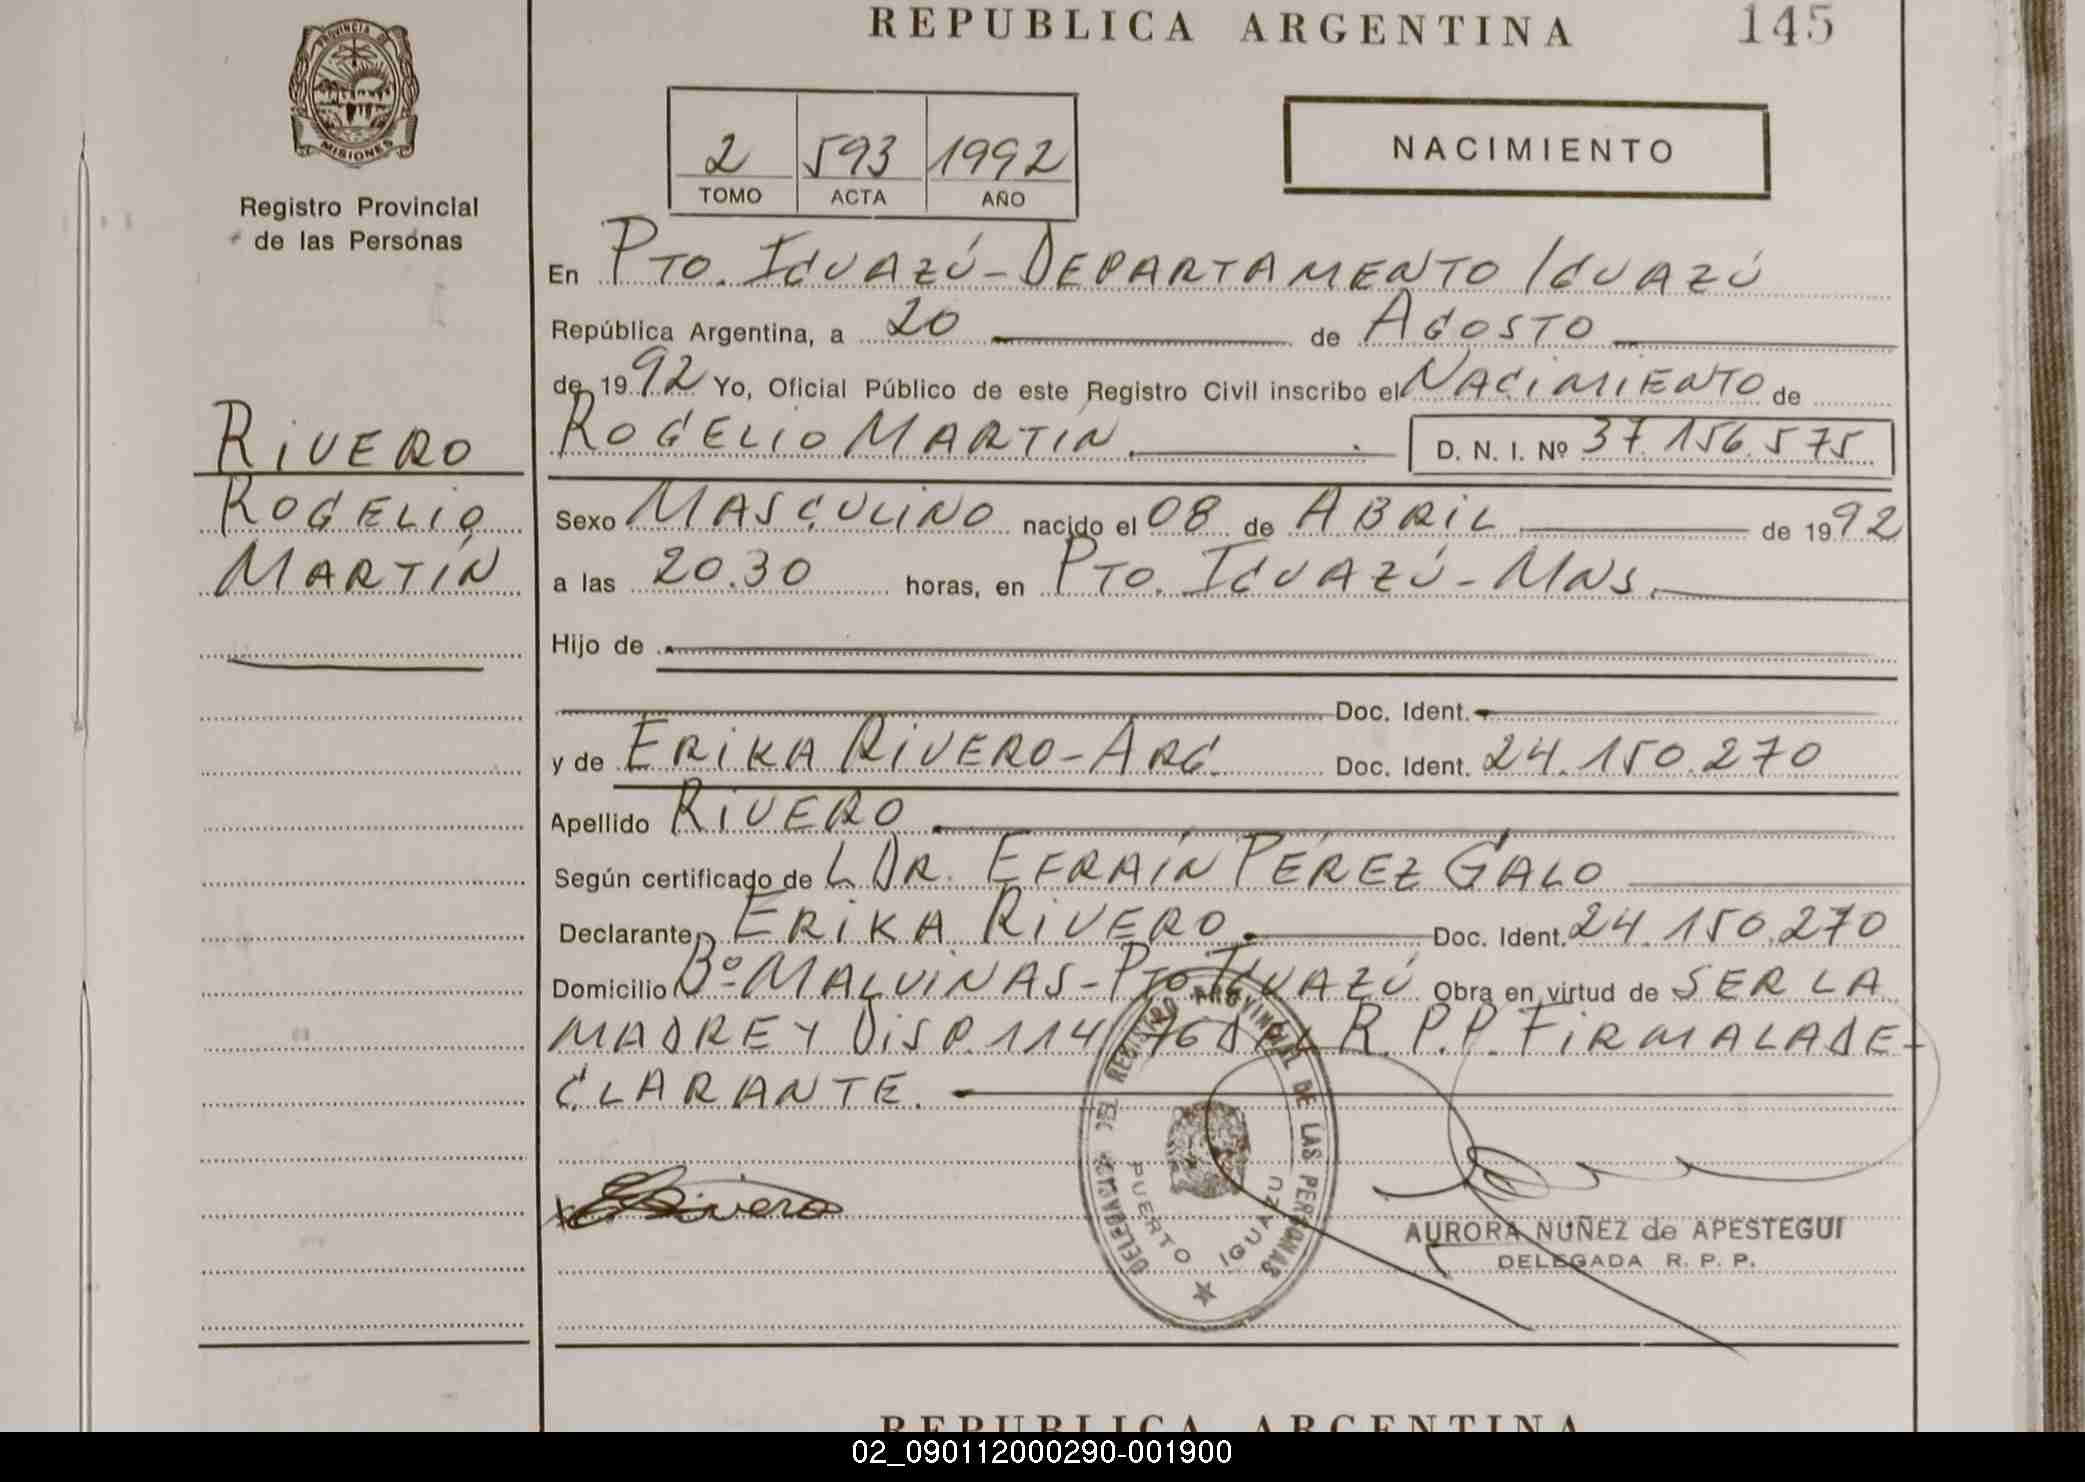 REPUBLICA ARGENTINA 145
PROVINCIA DE
MISIONES
Registro Provincial
de las Personas
2 593 1992
TOMO ACTA AÑO
NACIMIENTO
En PTO. IGUAZÚ - DEPARTAMENTO IGUAZÚ
República Argentina, a 20 de AGOSTO
de 1992 Yo, Oficial Público de este Registro Civil inscribo el NACIMIENTO de
ROGELIO MARTIN D. N. I. Nº 37.156.575
RIVERO
ROGELIO
MARTÍN
Sexo MASCULINO nacido el 08 de ABRIL de 1992
a las 20.30 horas, en PTO. IGUAZÚ - MNS.
Hijo de
Doc. Ident.
y de ERIKA RIVERO - ARG. Doc. Ident. 24.150.270
Apellido RIVERO
Según certificado de L DR. EFRAÍN PÉREZ GALO
Declarante ERIKA RIVERO Doc. Ident. 24.150.270
Domicilio Bº MALVINAS - PTO IGUAZÚ Obra en virtud de SER LA
MADRE Y DISP. 114/76 R.P.P. FIRMA LA DE-
CLARANTE.
DELEGACION DEL REGISTRO PROVINCIAL DE LAS PERSONAS
PUERTO IGUAZU
Rivero
AURORA NUÑEZ de APESTEGUI
DELEGADA R. P. P.
REPUBLICA ARGENTINA
02_090112000290-001900